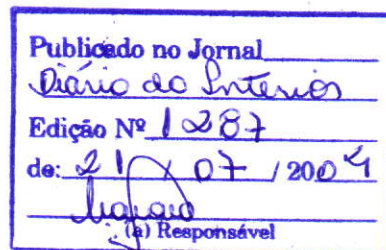 Publicado no Jornal
Diário do Interior
Edição Nº 1287
de: 21 / 07 / 2004
(a) Responsável